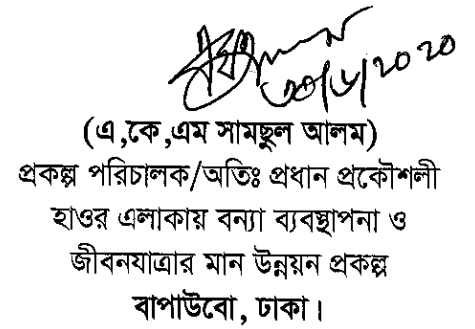 ৩০/৬/২০২০
(এ,কে,এম সামছুল আলম)
প্রকল্প পরিচালক/অতিঃ প্রধান প্রকৌশলী
হাওর এলাকায় বন্যা ব্যবস্থাপনা ও
জীবনযাত্রার মান উন্নয়ন প্রকল্প
বাপাউবো, ঢাকা।